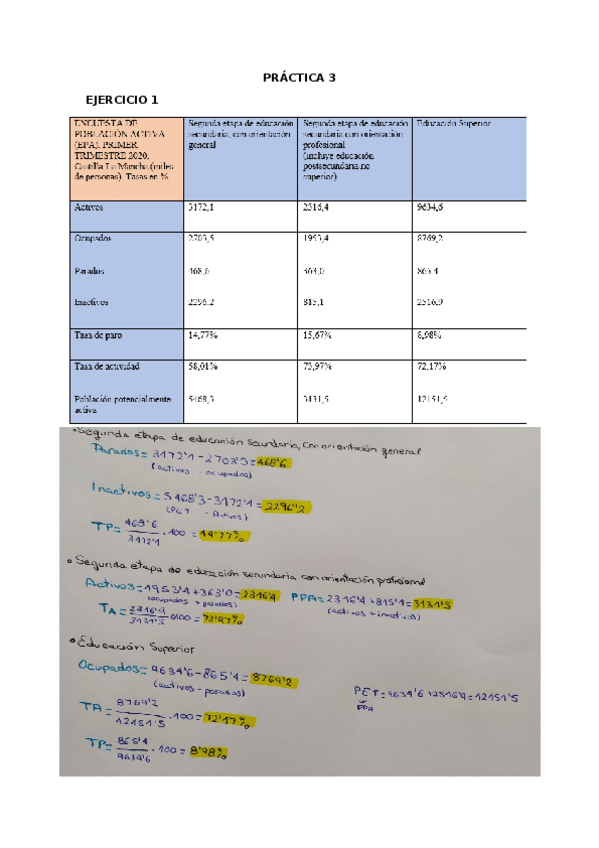 PRÁCTICA 3
EJERCICIO 1
ENCUESTA DE POBLACIÓN ACTIVA (EPA). PRIMER TRIMESTRE 2020. Castilla La Mancha.(miles de personas) Tasas en %
Segunda etapa de educación secundaria, con orientación general
Segunda etapa de educación secundaria con orientación profesional (incluye educación postsecundaria no superior)
Educación Superior
Activos 3172,1 2316,4 9634,6
Ocupados 2703,5 1953,4 8769,2
Parados 468,6 363,0 865,4
Inactivos 2296,2 815,1 2516,9
Tasa de paro 14,77% 15,67% 8,98%
Tasa de actividad 58,01% 73,97% 72,17%
Población potencialmente activa 5468,3 3131,5 12151,5
Segunda etapa de educación Secundaria, Con orientación general
Parados = 3172'1 - 2703'5 = 468'6
(activos - ocupados)
Inactivos = 5468'3 - 3172'1 = 2296'2
(PET - Activos)
TP = 468'6 / 3172'1 · 100 = 14'77%
Segunda etapa de educación secundaria con orientación profesional
Activos = 1953'4 + 363'0 = 2316'4 PPA = 2316'4 + 815'1 = 3131'5
(ocupados + parados) (activos + inactivos)
TA = 2316'4 / 3131'5 · 100 = 73'97%
Educación Superior
Ocupados = 9634'6 - 865'4 = 8769'2
(activos - parados)
PET = 9634'6 + 2516'9 = 12151'5
PPA
TA = 8769'2 / 12151'5 · 100 = 72'17%
TP = 865'4 / 9634'6 · 100 = 8'98%